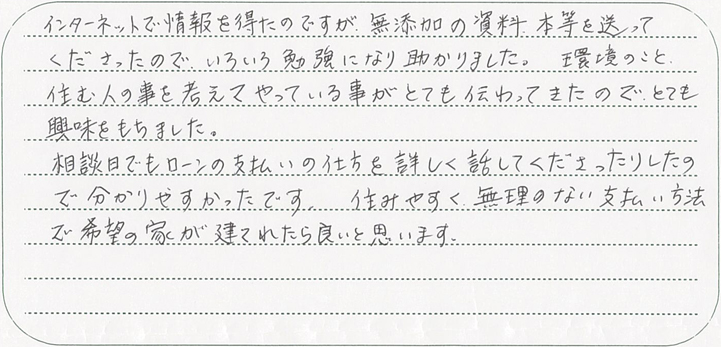 インターネットで情報を得たのですが、無添加の資料、本等を送って
くださったので、いろいろ勉強になり助かりました。 環境のこと、
住む人の事を考えてやっている事がとても伝わってきたので、とても
興味をもちました。
相談日でもローンの支払いの仕方を詳しく話してくださったりしたの
で分かりやすかったです。 住みやすく、無理のない支払い方法
で希望の家が建てれたら良いと思います。